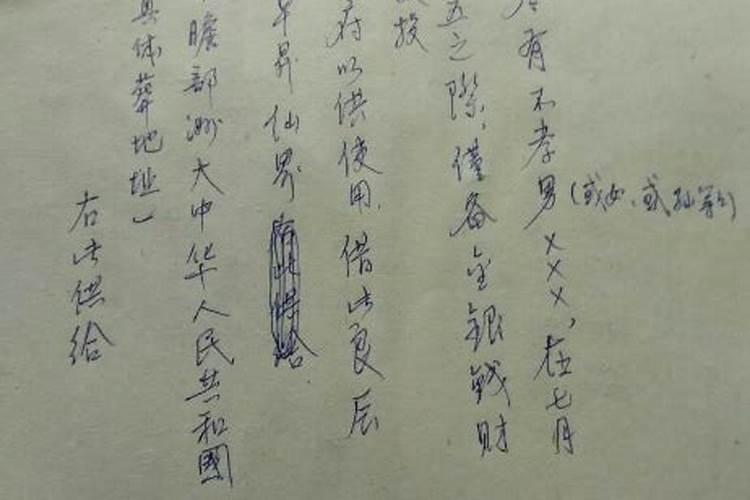 有不孝男(或女、或孙等)×××,在七月
五之际,仅备金銀钱财
投
府以供使用,借此良辰
早昇仙界
瞻部洲大中华人民共和國
具体葬地址)
右此供给